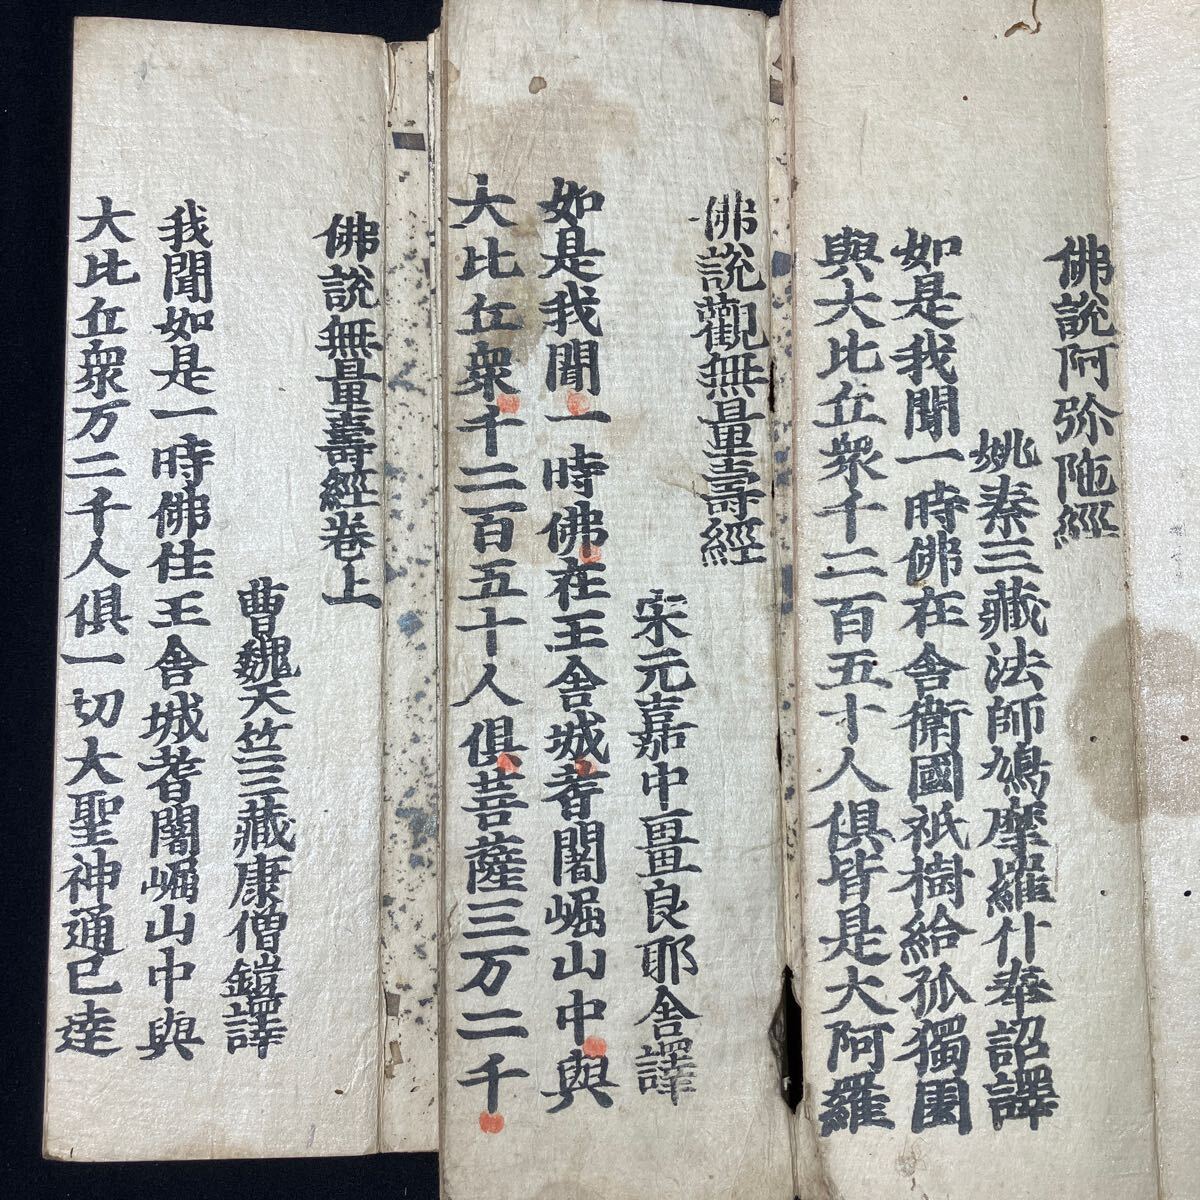 佛說阿弥陁經
姚秦三藏法師鳩摩羅什奉詔譯
如是我聞一時佛在舍衛國祇樹給孤獨園
與大比丘衆千二百五十人俱皆是大阿羅
佛說觀無量壽經
宋元嘉中畺良耶舍譯
如是我聞一時佛在王舍城耆闍崛山中與
大比丘衆千二百五十人俱菩薩三万二千
佛說無量壽經卷上
曹魏天竺三藏康僧鎧譯
我聞如是一時佛住王舍城耆闍崛山中與
大比丘衆万二千人俱一切大聖神通已達